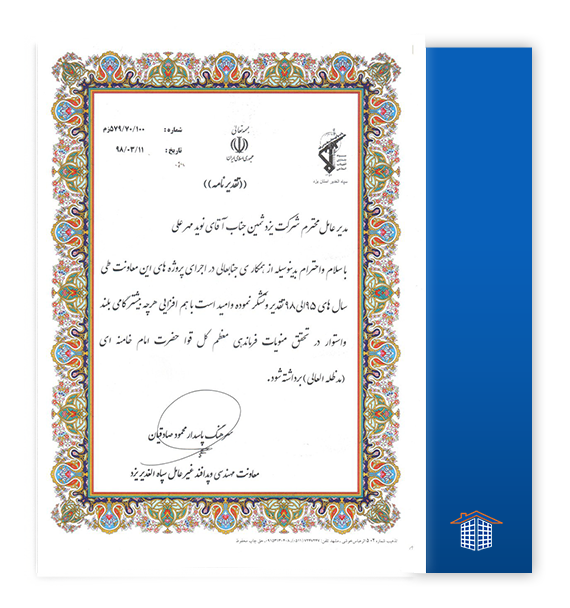 بسمه تعالی
جمهوری اسلامی ایران
شماره : ۵۷۹/۷۰/۱۰۰/م
تاریخ : ۹۸/۰۳/۱۱
سپاه الغدیر استان یزد
((تقدیرنامه))
مدیر عامل محترم شرکت یزد شمین جناب آقای نوید مهر علی
با سلام و احترام بدینوسیله از همکاری جنابعالی در اجرای پروژه های این معاونت طی
سال های ۹۵ الی ۹۸ تقدیر و تشکر نموده و امید است با هم افزایی هرچه بیشتر گامی بلند
واستوار در تحقق منویات فرماندهی معظم کل قوا حضرت امام خامنه ای
(مد ظله العالی) برداشته شود.
سرهنگ پاسدار محمود صادقیان
معاونت مهندسی و پدافند غیر عامل سپاه الغدیر یزد